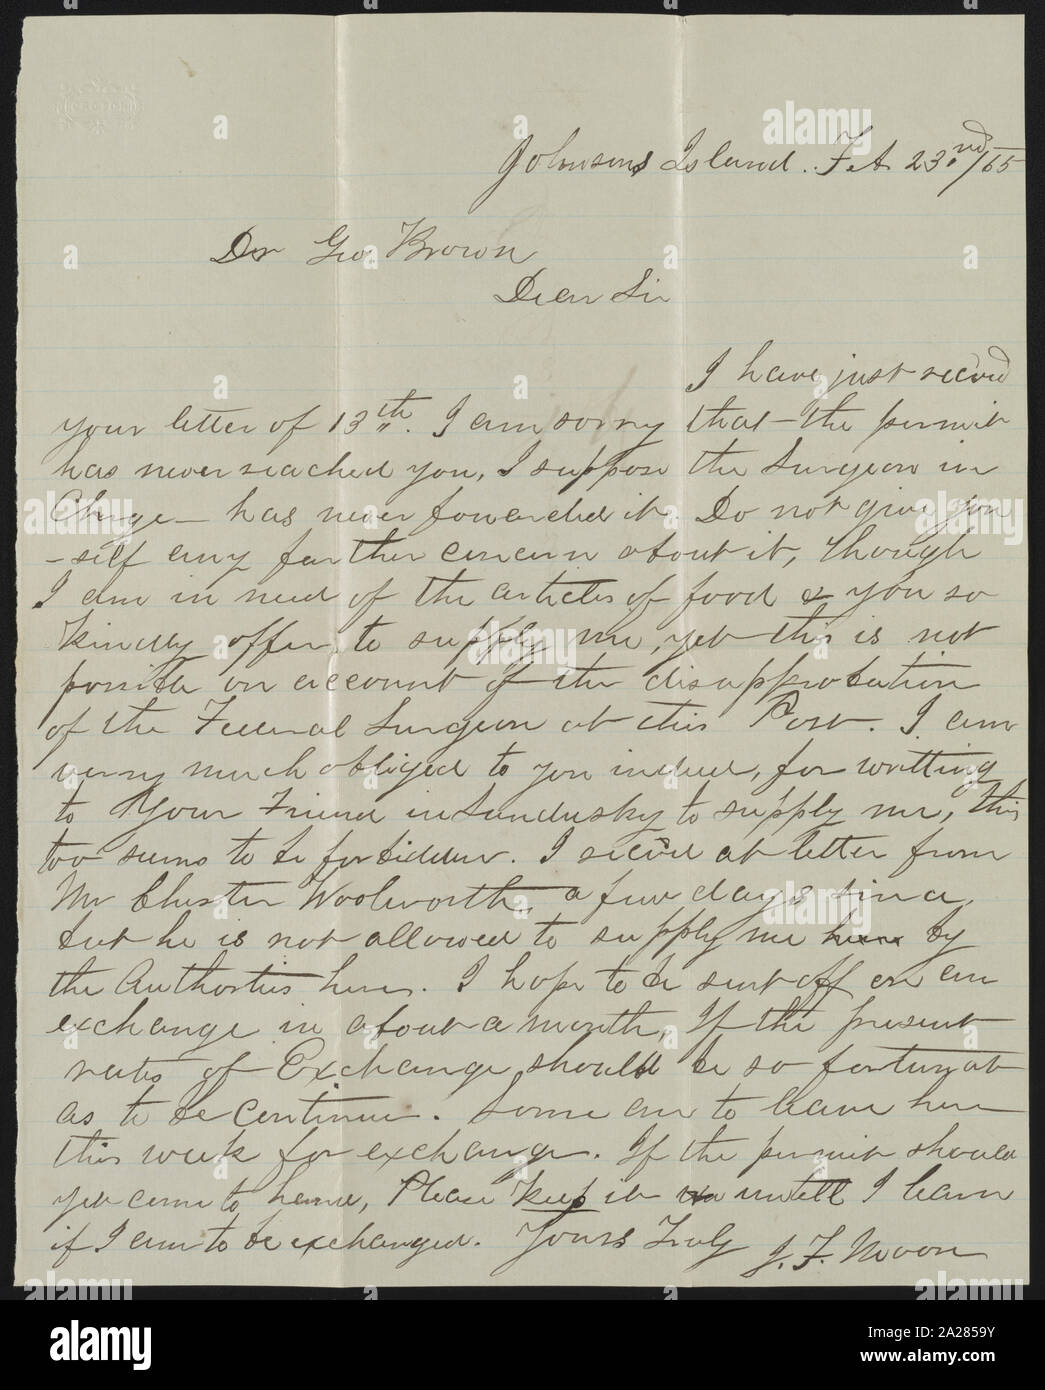 Johnsons Island. Feb. 23nd/65
Dr Geo. Brown
Dear Sir
I have just recevd
your letter of 13th. I am sorry that the permit
has never reached you, I suppose the Surgeon in
Chrge – has never forwarded it. Do not give you
-self any farther concern about it, though
I am in need of the articles of food & you so
kindly offer to supply me, yet this is not
possible on account of the disapprobation
of the Federal Surgeon at this Post. I am
verry much obliged to you indeed, for writting
to your Friend in Sandusky to supply me, this
too seems to be forbidden. I recevd a letter from
Mr Chester Woolworth, a few days since,
but he is not allowed to supply me here by
the Authorties here. I hope to be sent off on an
exchange in about a month, If the present
rates of Exchange should be so fortunat
as to be continue. Some are to leave here
this week for exchange. If the permit should
yet come to hand, Please keep it untill I learn
if I am to be exchanged. Yours Truly J. F. Moon
alamy
Image ID: 2A2859Y
www.alamy.com